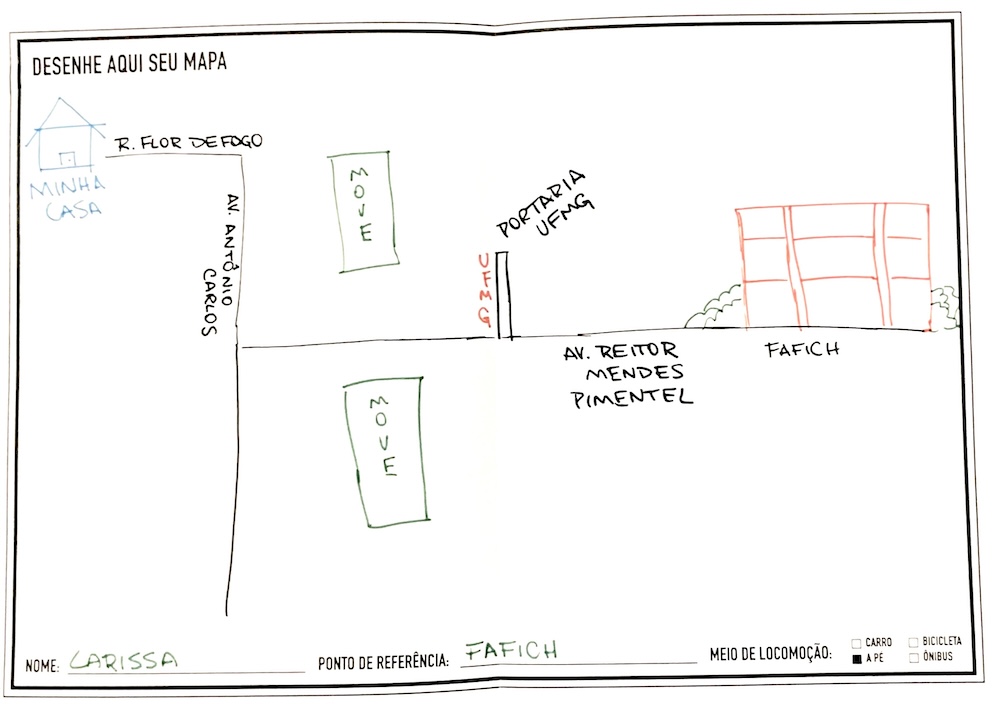 DESENHE AQUI SEU MAPA
R. FLOR DE FOGO
MINHA
CASA
AV. ANTÔNIO
CARLOS
MOVE
PORTARIA
UFMG
UFMG
AV. REITOR
MENDES
PIMENTEL
FAFICH
MOVE
NOME: LARISSA
PONTO DE REFERÊNCIA: FAFICH
MEIO DE LOCOMOÇÃO:
CARRO
BICICLETA
A PE
ÔNIBUS